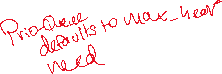 Prio-Queue
defaults to max_heap
need